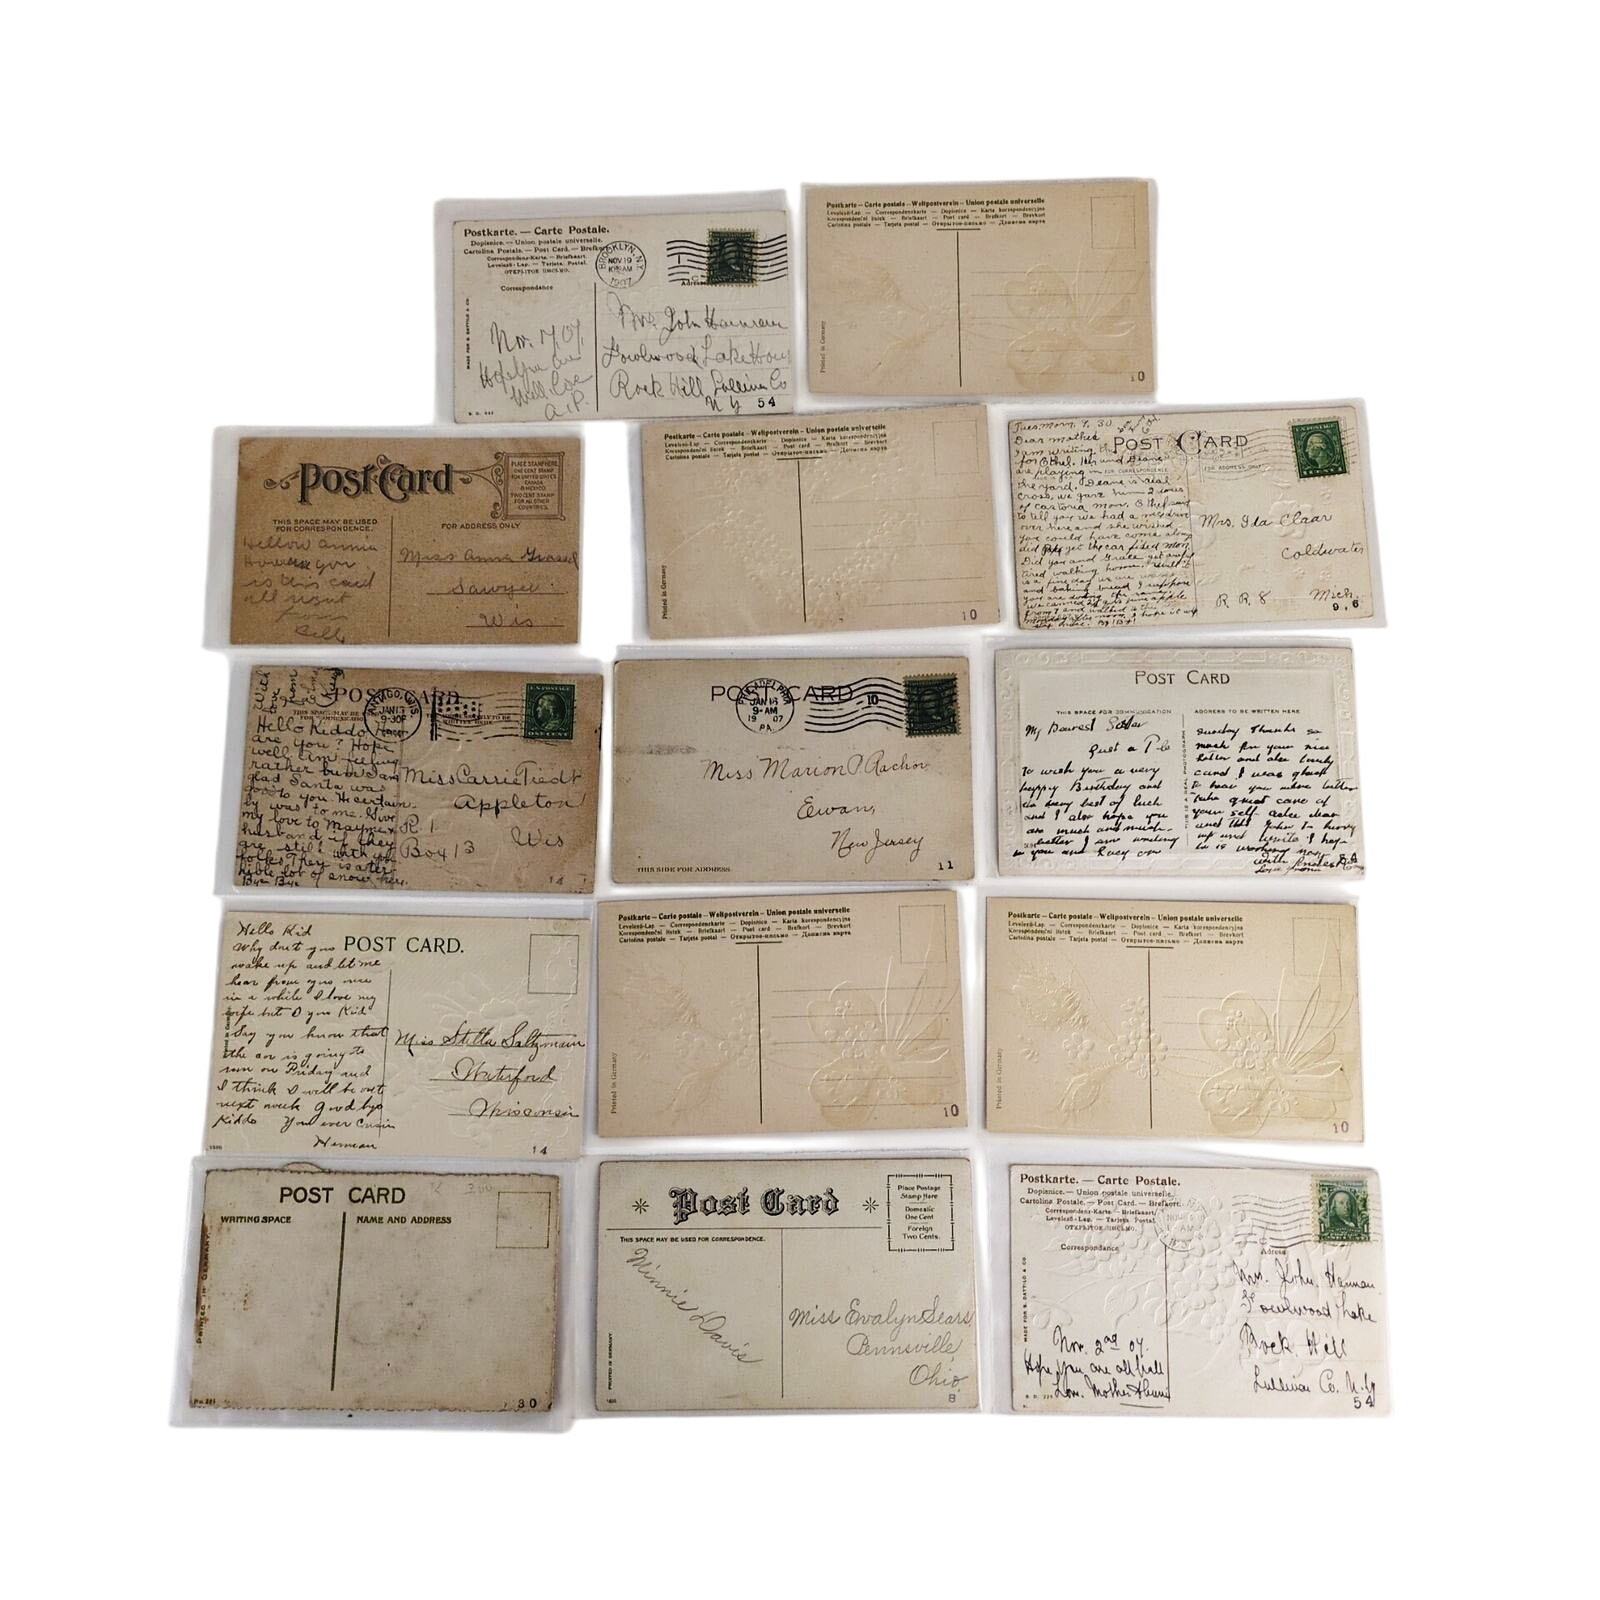 Postkarte. — Carte Postale.
Dopisnice. — Union postale universelle.
Cartolina Postale. — Post Card. — Brefkort
Correspondenz-Karte. — Briefkaart.
Levelezö-Lap. — Tarjeta Postal.
Correspondance
BROOKLYN, N.Y.
NOV 19
1907
MADE FOR B. DATTILO & CO.
Nov. 19, 07.
Hope you are
well. Love
A.P.
Mrs. John Hannan
Rock Hill Sullivan Co
N Y 54
Postkarte – Carte postale – Weltpostverein – Union postale universelle
Levelezö-Lap — Correspondenzkarte — Dopisnice — Karta korespondencyjna
Korespondenční lístek — Briefkaart — Post card — Brefkort — Brevkort
Cartolina postale — Tarjeta postal — Открытое-письмо — Дописна карта
Printed in Germany
10
Post Card
PLACE STAMP HERE
ONE CENT STAMP
FOR UNITED STATES
CANADA
& MEXICO
TWO CENT STAMP
FOR ALL OTHER
COUNTRIES.
THIS SPACE MAY BE USED
FOR CORRESPONDENCE.
FOR ADDRESS ONLY
Hellow Annie
How are you
is this card
all right
from
Bill
Miss Anna
Sawyer
Wis
Postkarte – Carte postale – Weltpostverein – Union postale universelle
Levelezö-Lap — Correspondenzkarte — Dopisnice — Karta korespondencyjna
Korespondenční lístek — Briefkaart — Post card — Brefkort — Brevkort
Cartolina postale — Tarjeta postal — Открытое-письмо — Дописна карта
Printed in Germany
10
Tues. Morn.
POST CARD
FOR CORRESPONDENCE
FOR ADDRESS ONLY
Dear mother
I am writing this
for Ethel. Her and Deane
are playing in
the yard. Deane is real
cross, we gave him 2 doses
of castoria mon. Ethel said
to tell you we had a nice drive
over here and she wished
you could have come along
did Pa get the car fixed mon
Did you and Grace get awful
tired walking home. Well it
is a fine day we are washing
and baking bread I suppose
you are doing the same
Mrs. Ida Claar
Coldwater
R. R. 8 Mich.
9.6
With
love
from
POST CARD
ANTIGO, WIS.
JAN 13
9-30P
U.S. POSTAGE
ONE CENT
Hello Kiddo How
are you? Hope
well. I'm feeling
rather bum. I am
glad Santa was
good to you. He certain-
ly was to me. Give
my love to Mayme &
husband if they
are still with you
folks. They is a ter-
rible lot of snow here.
Bye Bye
Miss Carrie Tiedt
Appleton
R. 1
Box 13 Wis
14
POST CARD
PHILADELPHIA
JAN 16
9-AM
19 07
PA.
10
Miss Marion P. Rachor
Ewan,
New Jersey
THIS SIDE FOR ADDRESS.
11
POST CARD
THIS SPACE FOR COMMUNICATION
ADDRESS TO BE WRITTEN HERE
THIS IS A REAL PHOTOGRAPH
My Dearest Sister
Just a P.c
to wish you a very
happy Birthday and
the very best of luck
and I also hope you
are much and much
better I am writing
to you and Lucy on
Sunday Thanks so
much for your nice
letter and also lovely
card I was glad
to hear you were better
take great care of
your self dear
and tell John to hurry
up and write I hope
he is working now
with fondest
Love from
Hello Kid
POST CARD.
Why don't you
wake up and let me
hear from you once
in a while I love my
wife but O you Kid
Say you know that
the car is going to
run on Friday and
I think I will be out
next week good bye
Kiddo Your ever Cusin
Herman
Miss Stella Saltzmann
Waterford
Wisconsin
14
Postkarte – Carte postale – Weltpostverein – Union postale universelle
Levelezö-Lap — Correspondenzkarte — Dopisnice — Karta korespondencyjna
Korespondenční lístek — Briefkaart — Post card — Brefkort — Brevkort
Cartolina postale — Tarjeta postal — Открытое-письмо — Дописна карта
Printed in Germany
10
Postkarte – Carte postale – Weltpostverein – Union postale universelle
Levelezö-Lap — Correspondenzkarte — Dopisnice — Karta korespondencyjna
Korespondenční lístek — Briefkaart — Post card — Brefkort — Brevkort
Cartolina postale — Tarjeta postal — Открытое-письмо — Дописна карта
Printed in Germany
10
POST CARD
WRITING SPACE
NAME AND ADDRESS
PRINTED IN GERMANY
30
Post Card
Place Postage
Stamp Here
Domestic
One Cent
Foreign
Two Cents.
THIS SPACE MAY BE USED FOR CORRESPONDENCE.
PRINTED IN GERMANY
Minnie Davis
Miss Evalyn Sears
Pennsville
Ohio.
8
Postkarte. — Carte Postale.
Dopisnice. — Union postale universelle.
Cartolina Postale. — Post Card. — Brefkort.
Correspondenz-Karte. — Briefkaart.
Levelezö-Lap. — Tarjeta Postal.
Correspondance
Adress
MADE FOR B. DATTILO & CO
Nov. 2nd 07.
Hope you are all well
Love Mother
Mrs. John Hannan
Rock Hill
Sullivan Co. N.Y
54